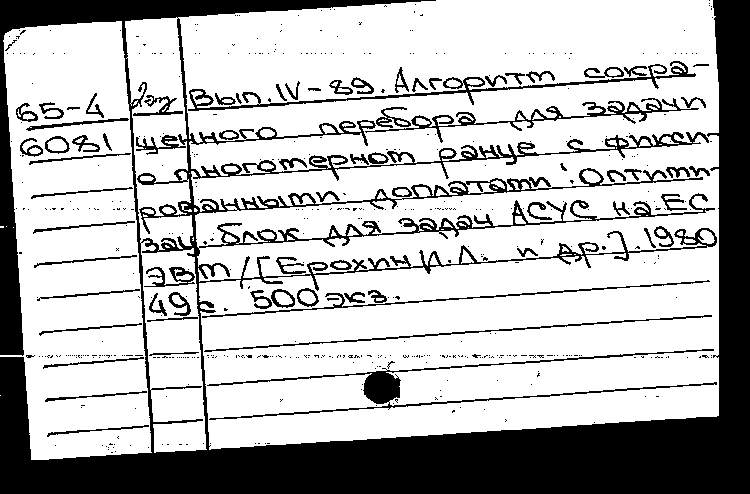 65-4 2эк Вып. IV-89. Алгоритм сокра-
6081 щенного перебора для задачи
о многомерном ранце с фикси-
рованными доплатами: Оптими-
зац. блок для задач АСУС на ЕС
ЭВМ / [Ерохин И.Л. и др.]. 1980
49 с. 500 экз.